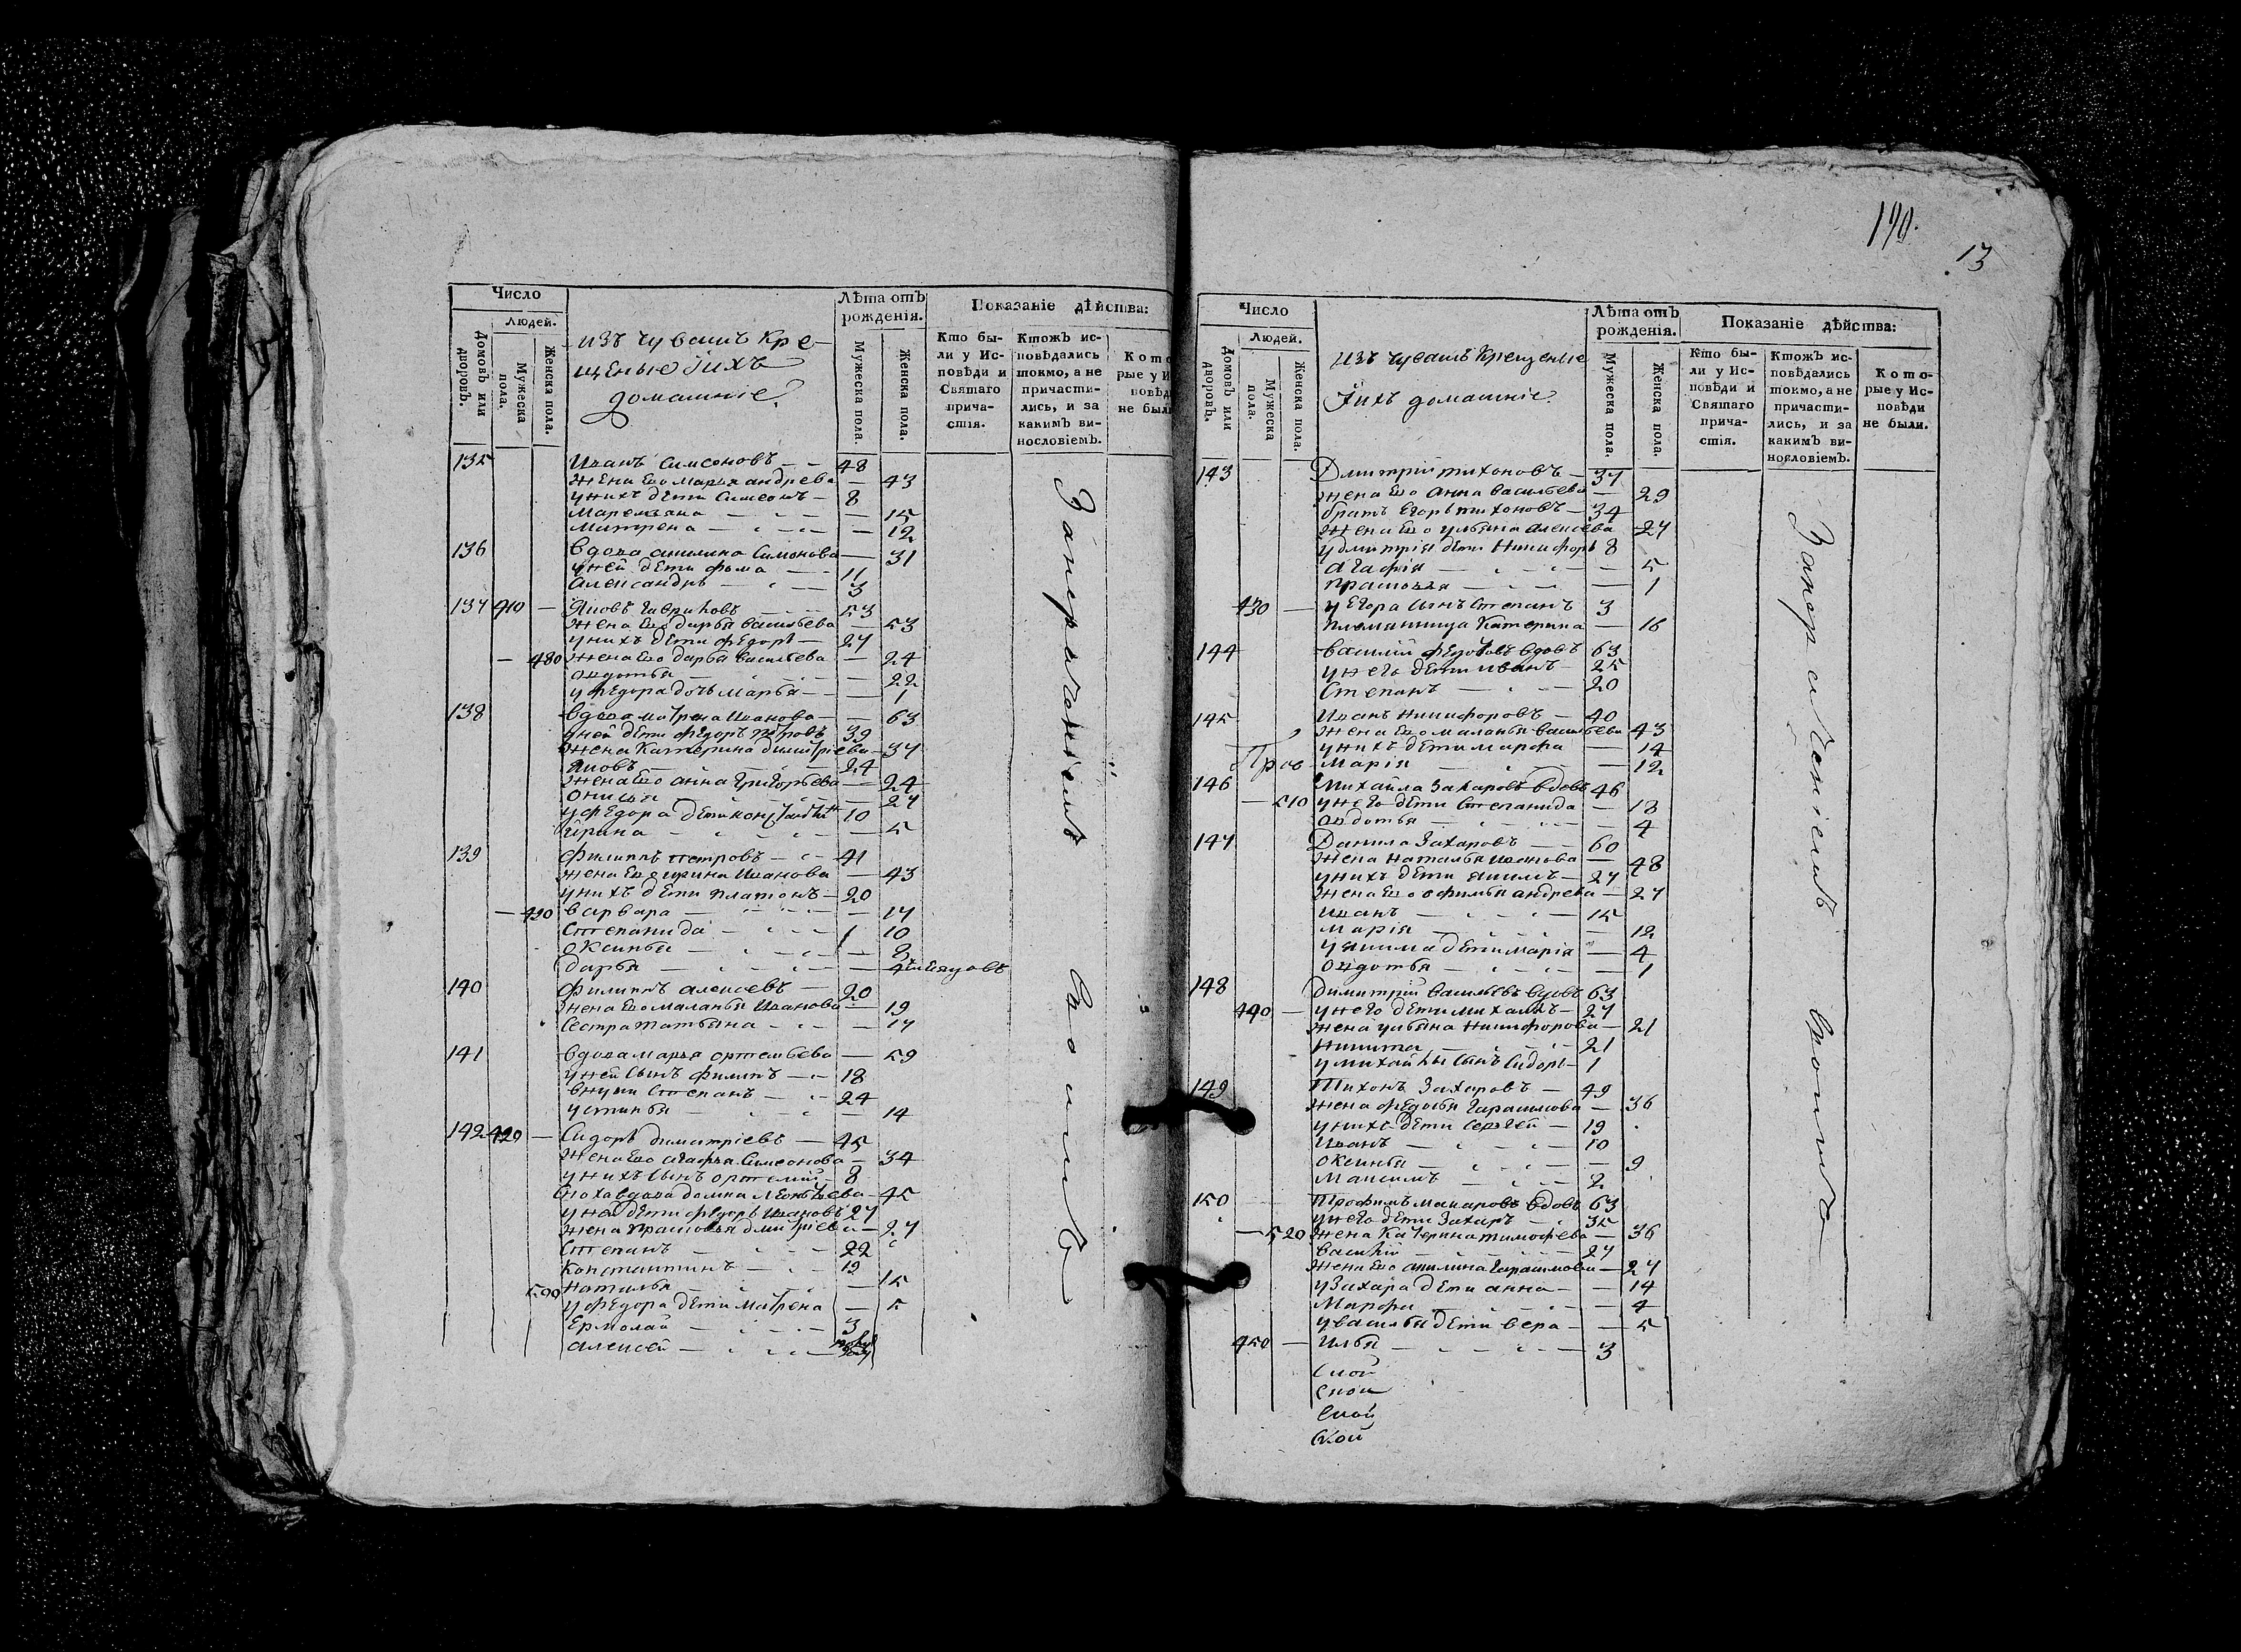 190.
13
Число
Людей.
Домовъ или дворовъ.
Мужеска пола.
Женска пола.
изъ чувашъ кре
щеные и ихъ
домашніе.
Лѣта отъ рожденія.
Мужеска пола.
Женска пола.
Показаніе дѣйства:
Кто бы-
ли у Ис-
повѣди и
Святаго
прича-
стія.
Ктожъ ис-
повѣдались
токмо, а не
причасти-
лись, и за
какимъ ви-
нословіемъ.
135 Иванъ Симеоновъ — 48
жена ево марья андрева — 43
у нихъ дети Симеонъ — 8
маремьяна — 15
матрена — 12
136 вдова акилина Симонова — 31
у ней дети фома — 11
александръ — 3
137 410 — Яковъ Гавриловъ 53
жена ево дарья васильева — 53
у нихъ дети федоръ — 27
— 480 жена ево дарья васильева — 24
овдотья — 22
у федора дочь марья — 1
138 вдова матрена Иванова — 63
у ней дети федоръ петровъ 39
жена Катерина димитріева — 37
яковъ — 24
жена ево анна григорьева — 24
онисья — 27
у федора дети 10
ирина — 5
139 филиппъ петровъ — 41
жена ево ирина Иванова — 43
у нихъ дети платонъ — 20
— 490 варвара — 17
степанида — 10
оксинья — 8
дарья — 4
140 филиппъ алексевъ — 20
жена ево маланья Иванова — 19
сестра татьяна — 17
141 вдова марья ортемьева — 59
у ней сынъ филипъ — 18
внуки степанъ — 24
устинья — 14
142 420 — Сидоръ димитріевъ — 45
жена ево агафья Симеонова — 34
у нихъ сынъ ортемій — 8
сноха вдова домна — 45
у ней дети федоръ Ивановъ 27
жена прасковья дмитріева — 27
степанъ — 22
константинъ — 19
500 наталья — 15
у федора дети матрена — 5
Ермолай — 3
алексей —
За неради́ніемъ
Число
Людей.
Домовъ или дворовъ.
Мужеска пола.
Женска пола.
изъ чувашъ крещеные
и ихъ домашніе.
Лѣта отъ рожденія.
Мужеска пола.
Женска пола.
Показаніе дѣйства:
Кто бы-
ли у Ис-
повѣди и
Святаго
прича-
стія.
Ктожъ ис-
повѣдались
токмо, а не
причасти-
лись, и за
какимъ ви-
нословіемъ.
Кото-
рые у Ис-
повѣди
не были.
143 Дмитрій тихоновъ — 37
жена ево анна васильева — 29
братъ Егоръ тихоновъ — 34
жена ево ульяна алексева 27
у дмитрія дети никифоръ 8
агафія — 5
прасковья — 1
430 — у Егора сынъ степанъ 3
племянница Катерина — 16
144 василій федотовъ вдовъ 63
у него дети иванъ — 25
степанъ — 20
145 Иванъ никифоровъ — 40
жена ево маланья васильева 43
у нихъ дети марфа — 14
марія — 12
146 михайла захаровъ вдовъ 46
— 510 у него дети степанида — 18
овдотья — 4
147 Данила захаровъ — 60
жена наталья иванова — 48
у нихъ дети якимъ — 27
жена ево офимья андрева — 27
иванъ — 15
марія — 12
у якима дети марія — 4
овдотья — 1
148 Димитрій васильевъ вдовъ 63
440 — у него дети михайла — 27
жена ульяна никифорова — 21
никита — 21
у михайлы сынъ сидоръ — 1
149 Тихонъ захаровъ — 49
жена федосья гарасимова — 36
у нихъ дети сергей — 19
иванъ — 10
оксинья — 9
максимъ — 2
150 Трофимъ макаровъ вдовъ 63
у него дети захаръ — 35
— 520 жена катерина тимофева — 36
василій — 27
жена ево акилина гарасимова — 27
у захара дети анна — 14
марфа — 4
у василья дети вера — 5
450 — илья — 3